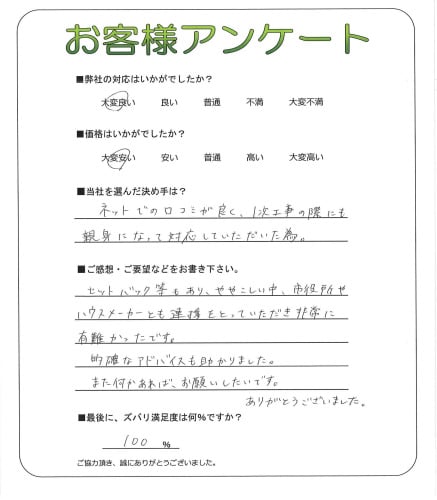 お客様アンケート
■弊社の対応はいかがでしたか？
大変良い 良い 普通 不満 大変不満
■価格はいかがでしたか？
大変安い 安い 普通 高い 大変高い
■当社を選んだ決め手は？
ネットでの口コミが良く、1次工事の際にも
親身になって対応していただいた為。
■ご感想・ご要望などをお書き下さい。
セットバック等もあり、ややこしい中、市役所や
ハウスメーカーとも連携をとっていただき非常に
有難かったです。
的確なアドバイスも助かりました。
また何かあれば、お願いしたいです。
ありがとうございました。
■最後に、ズバリ満足度は何%ですか？
100 %
ご協力頂き、誠にありがとうございました。